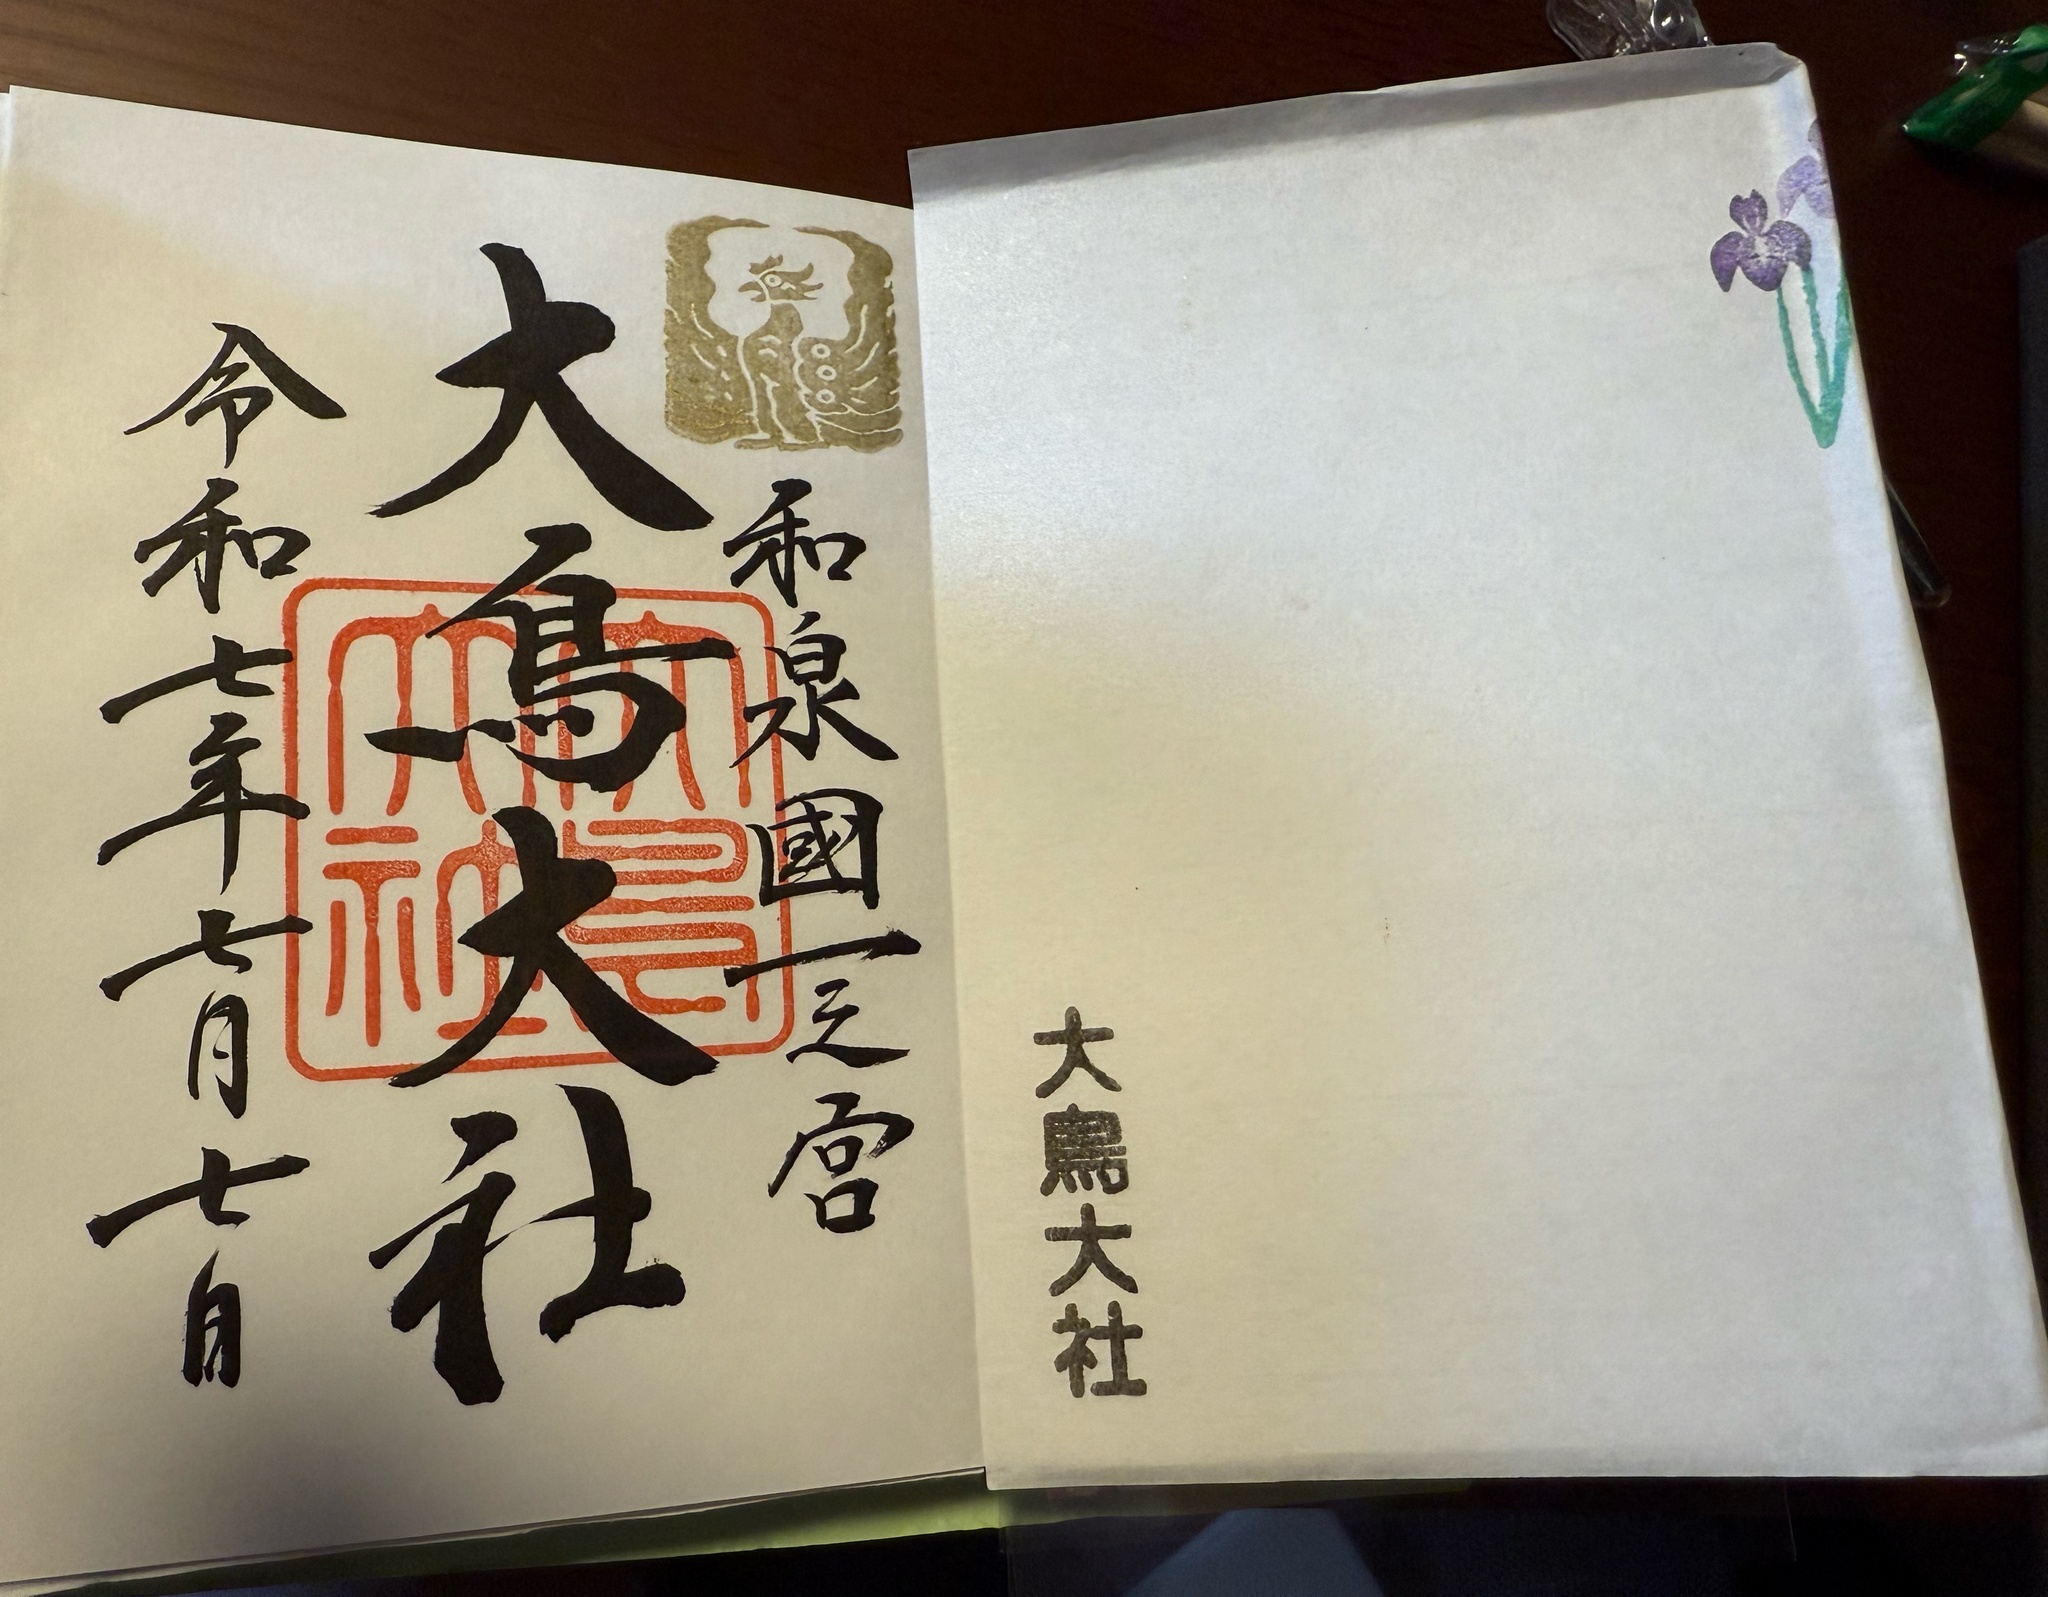 大鳥大社
和泉國一之宮
大鳥大社
大鳥
大社
令和七年七月七日